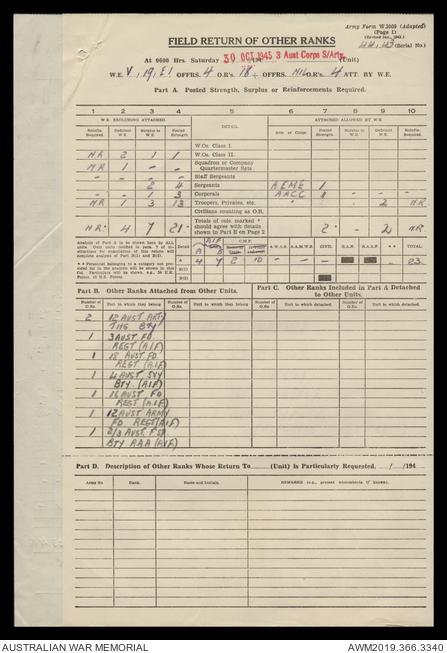 Army Form W.3009 (Adapted)
(Page 1)
(Revised Jan., 1943.)
(Serial No.)
FIELD RETURN OF OTHER RANKS
At 0600 Hrs. Saturday 30 OCT 1945 3 Aust Corps S/Arty (Unit)
W.E. V, 19, E1 OFFRS. 4 O.R's. 18 + OFFRS. NIL O.R's. 4 ATT. BY W.E.
Part A. Posted Strength, Surplus or Reinforcements Required.
1 2 3 4 5 6 7 8 9 10
W.E. EXCLUDING ATTACHED. ATTACHED ALLOWED BY W.E.
Reinfts. Required. Deficient W.E. Surplus to W.E. Posted Strength DETAIL. Arm or Corps Posted Strength Surplus to W.E. Deficient W.E. Reinfts. Required.
W.Os. Class I.
NR 2 1 1 W.Os. Class II.
NR 1 - - Squadron or Company Quartermaster Sgts.
- - - - Staff Sergeants
2 4 Sergeants AEME 1
- - 1 3 Corporals AACC 1 - - -
NR 1 3 13 Troopers, Privates, etc. 2 NR
Civilians counting as O.R.
NR 4 7 21 Totals of cols. marked * should agree with details shown in Part E on Page 2 2 - 2 NR
A.I.F. C.M.F. A.W.A.S. A.A.M.W.S. CIVIL R.A.N. R.A.A.F. * * TOTAL
A 4 7 2 10 - - - 23
B(II)
B(III)
Part B. Other Ranks Attached from Other Units. Part C. Other Ranks Included in Part A Detached to Other Units.
Number of O.Rs. Unit to which they belong Number of O.Rs. Unit to which they belong Number of O.Rs. Unit to which detached. Number of O.Rs. Unit to which detached.
2 12 AUST ARTY
TNG BTY
1 3 AUST FD
REGT (AIF)
1 18 AUST FD
REGT (AIF)
1 4 AUST SVY
BTY (AIF)
1 16 AUST FD
REGT (AIF)
1 12 AUST ARMY
FD REGT (AIF)
1 2/3 AUST
BTY RAA (AIF)
Part D. Description of Other Ranks Whose Return To (Unit) is Particularly Requested. / /194
Army No Rank. Name and Initials. REMARKS (e.g., present whereabouts if known).
AUSTRALIAN WAR MEMORIAL AWM2019.366.3340